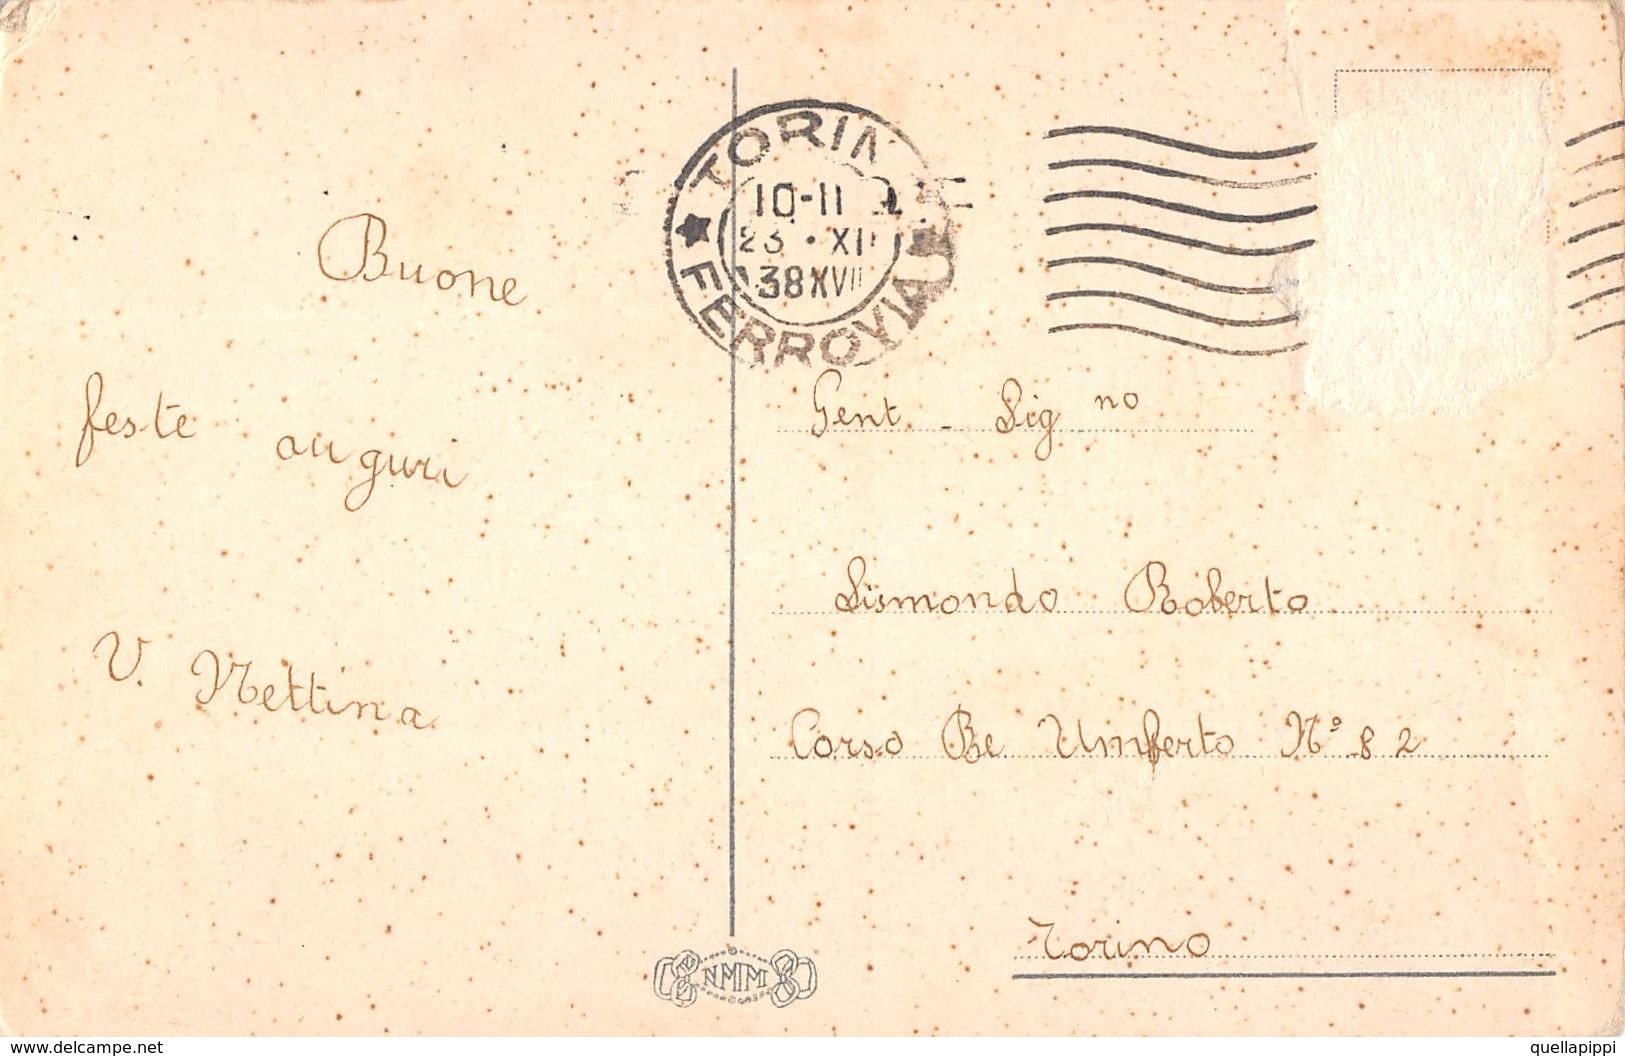 Buone
feste auguri
V. Nettina
TORINO
10-11
23 · XII
38 XVII
FERROVIA
Gent. Sig no
Sismondo Roberto
Corso Re Umberto N° 82
Torino
NMM
delcampe.net
quellapippi